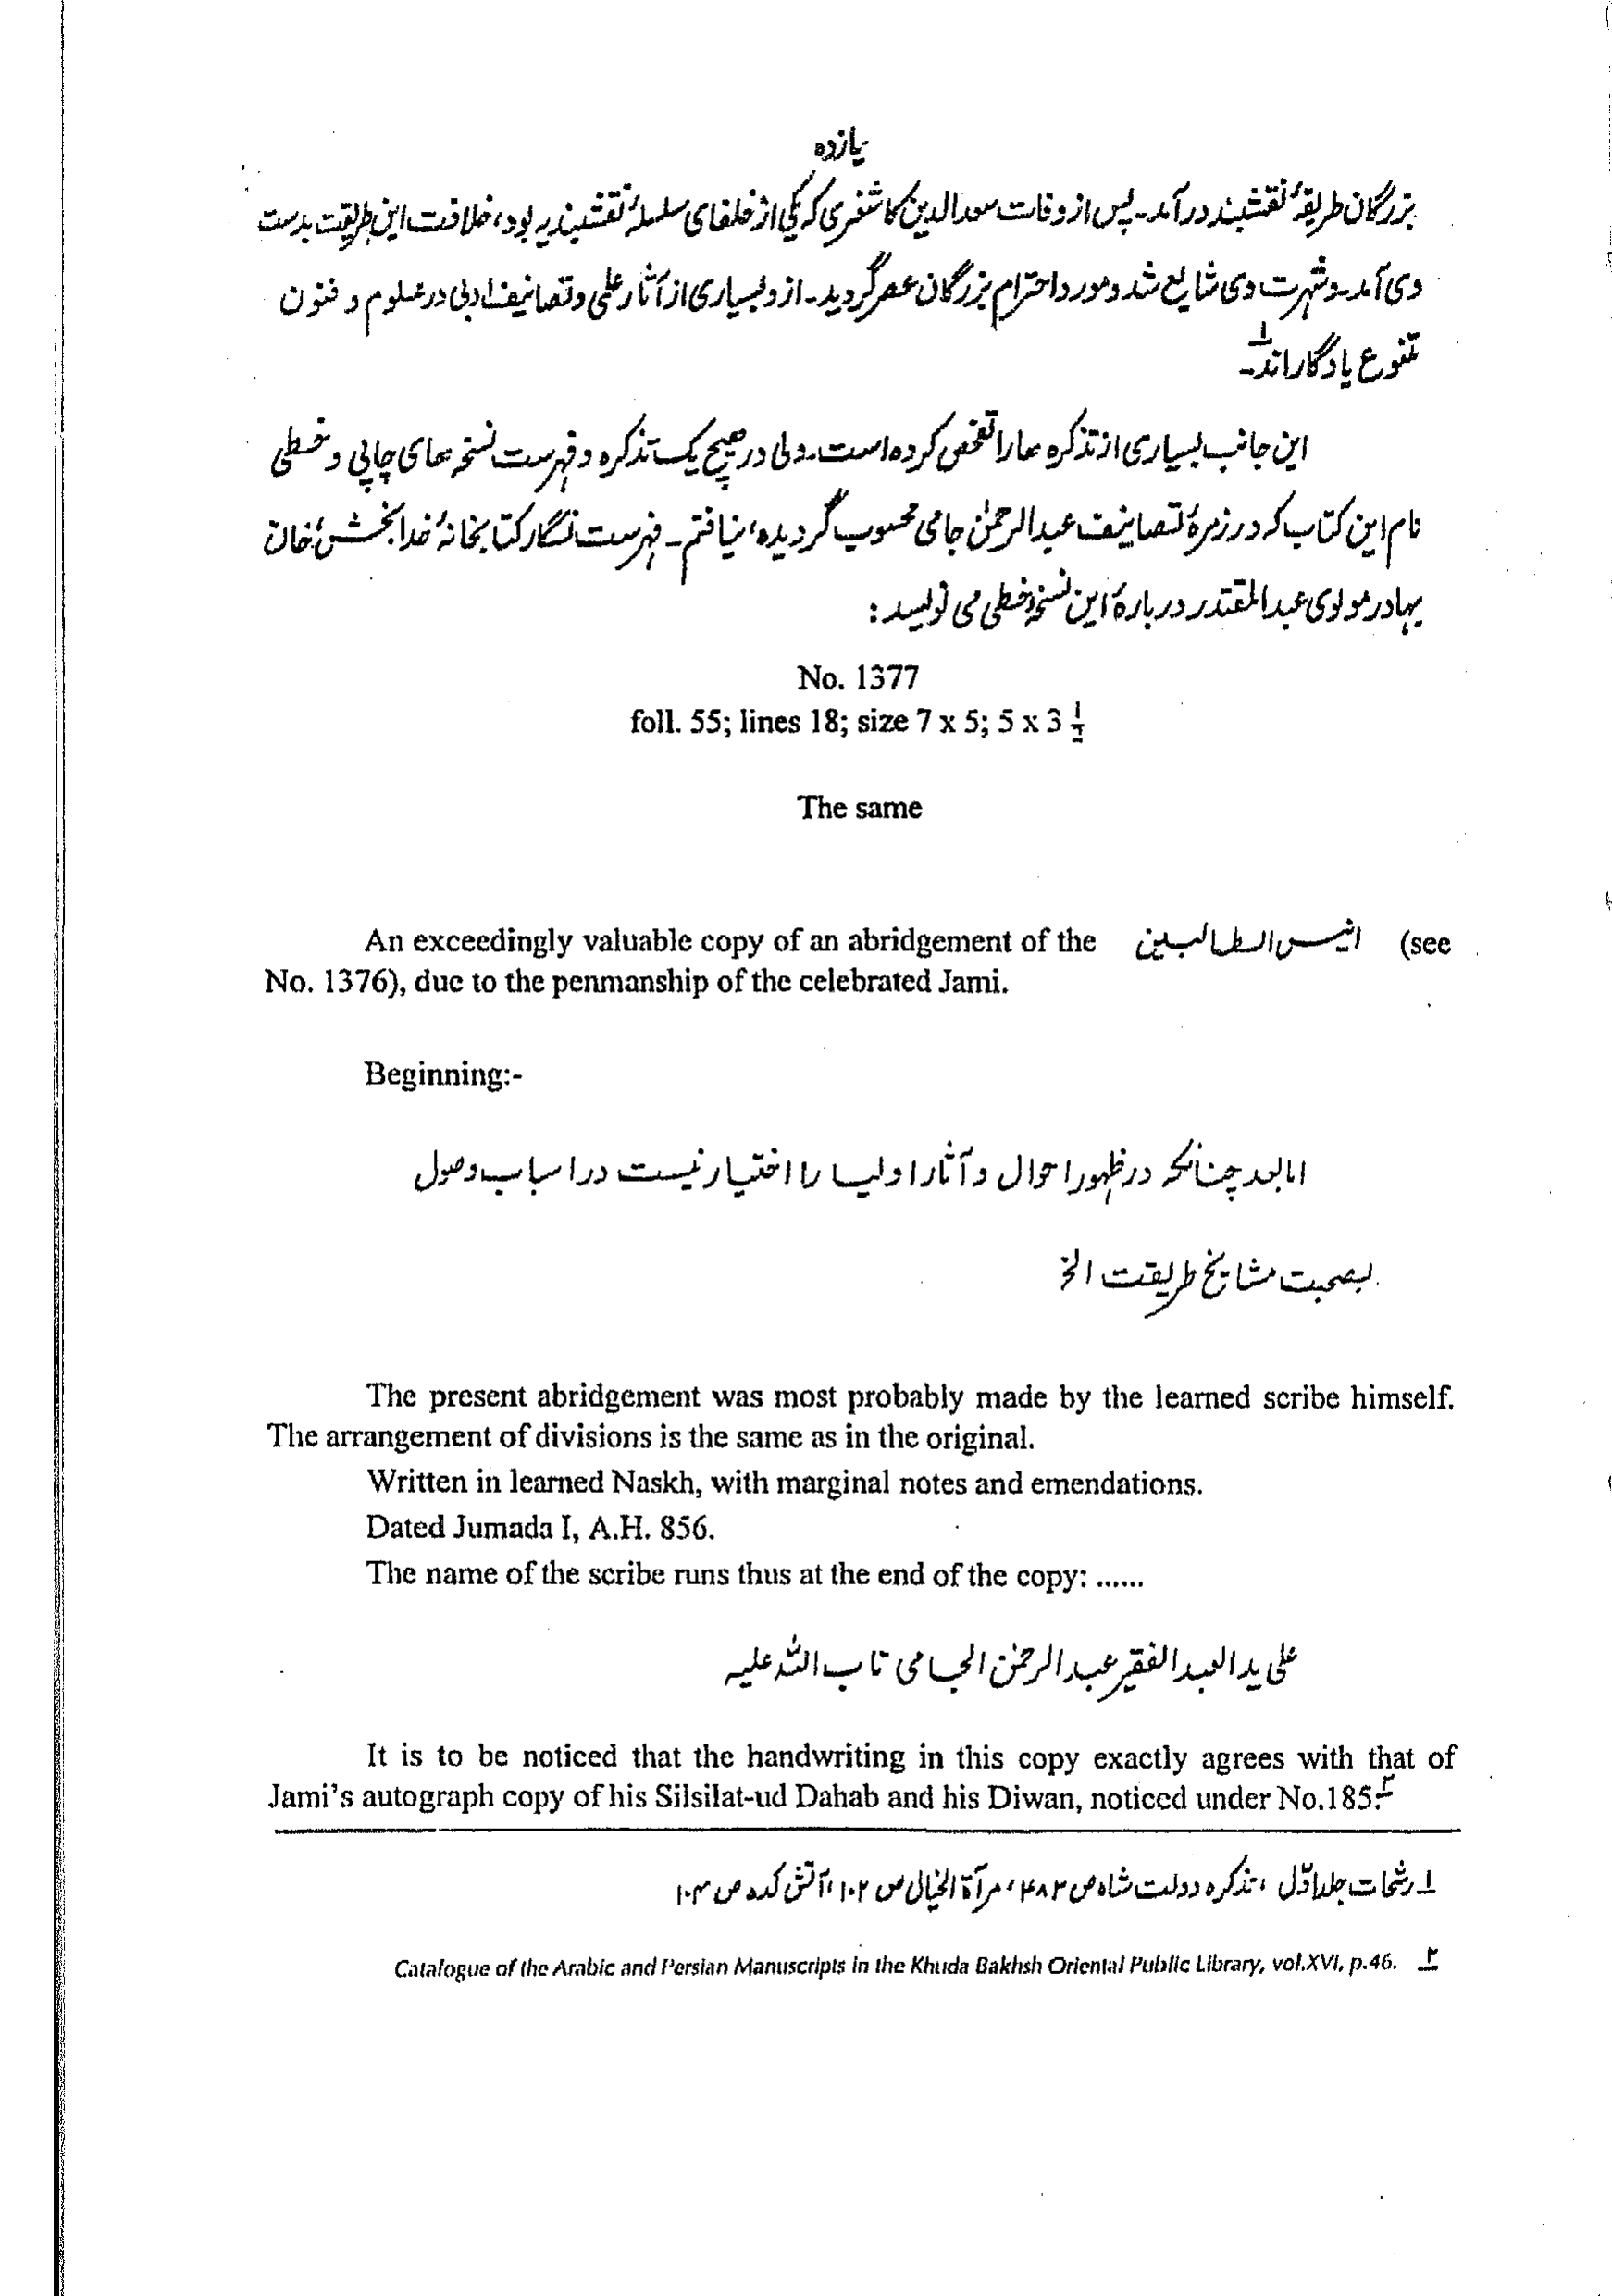 یازده
بزرگان طریقۀ نقشبند در آمد۔ پس از وفات سعد الدین کاشغری که یکی از خلفای سلسلۀ نقشبندیه بود، خلافت این طریقت بدست
وی آمد۔ و شهرت وی شایع شد و مورد احترام بزرگان عصر گردید۔ از و بسیاری از آثار علمی و تصانیف ادبی در علوم و فنون
متنوع یادگاراند۔ ۱
این جانب بسیاری از تذکره ها را تفحص کرده است۔ ولی در هیچ یک تذکره و فهرست نسخه های چاپی و خطی
نام این کتاب که در زمرۀ تصانیف عبد الرحمٰن جامی محسوب گردیده، نیافتم۔ فهرست نگار کتابخانۀ خدا بخش خان
بهادر مولوی عبد المقتدر دربارۀ این نسخۀ خطی می نویسد:
No. 1377
foll. 55; lines 18; size 7 x 5; 5 x 3 ½
The same
An exceedingly valuable copy of an abridgement of the انیس الطالبین (see
No. 1376), due to the penmanship of the celebrated Jami.
Beginning:-
اما بعد چنانکه در ظهور احوال و آثار اولیا را اختیار نیست در اسباب وصول
بصحبت مشایخ طریقت الخ
The present abridgement was most probably made by the learned scribe himself.
The arrangement of divisions is the same as in the original.
Written in learned Naskh, with marginal notes and emendations.
Dated Jumada I, A.H. 856.
The name of the scribe runs thus at the end of the copy: ......
علی ید العبد الفقیر عبد الرحمٰن الجامی تاب اللّٰه علیه
It is to be noticed that the handwriting in this copy exactly agrees with that of
Jami's autograph copy of his Silsilat-ud Dahab and his Diwan, noticed under No.185. ۲
۱ رشحات جلد اوّل، تذکره دولت شاه ص ۴۸۳، مرآة الخیال ص ۱۰۲، آتش کده ص ۱۰۳
Catalogue of the Arabic and Persian Manuscripts in the Khuda Bakhsh Oriental Public Library, vol.XVI, p.46. ۲